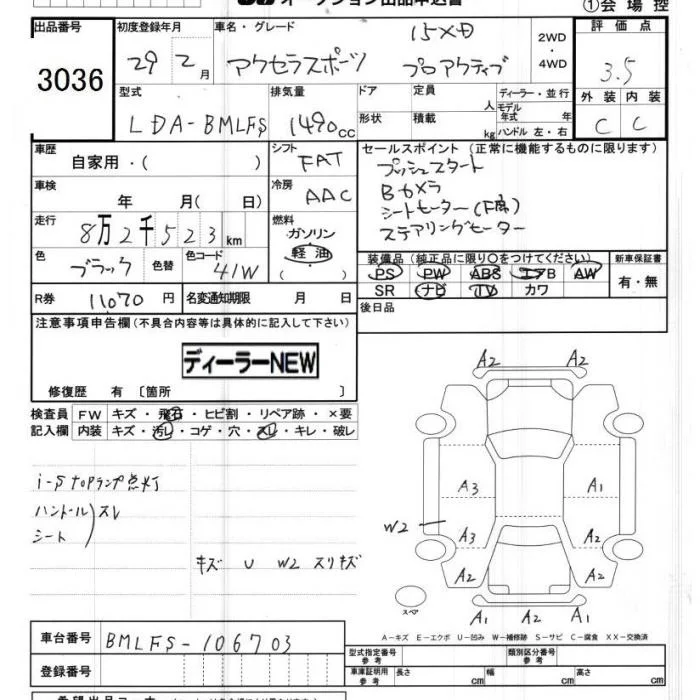 オークション出品申込書
①会場控
出品番号 初度登録年月 車名・グレード 15XD 2WD・4WD 評価点
3036 29年2月 アクセラスポーツ プロアクティブ 3.5
型式 排気量 ドア 定員 人 ディーラー・並行 外装 内装
LDA-BMLFS 1490cc 形状 積載 kg モデル年式 年 ハンドル左・右 C C
車歴 自家用・( ) シフト FAT セールスポイント(正常に機能するものに限ります)
プッシュスタート
車検 年 月( 日) 冷房 AAC Bカメラ
シートヒーター(F席)
走行 8万2千523km 燃料 ガソリン 軽油 ( ) ステアリングヒーター
色 ブラック 色替 色コード 41W 装備品(純正品に限り○をつけてください) 新車保証書
PS PW ABS エアB AW 有・無
SR ナビ TV カワ
R券 11070円 名変通知期限 月 日 後日品
注意事項申告欄(不具合内容等は具体的に記入して下さい)
ディーラーNEW
修復歴 有 〔箇所 〕
検査員 FW キズ・飛石・ヒビ割・リペア跡・×要
記入欄 内装 キズ・汚レ・コゲ・穴・スレ・キレ・破レ
i-stopランプ点灯
ハンドル
シート
スレ
キズ U W2 スリキズ
A2 A2
A2 A2
A3 A1
W2 A3 A1
A2 A2
A1 A2 A1
スペア
A-キズ E-エクボ U-凹み W-補修跡 S-サビ C-腐食 XX-交換済
車台番号 BMLFS-106703
登録番号
型式指定番号 参考 類別区分番号 参考
車庫証明用 参考 長さ cm 幅 cm 高さ cm